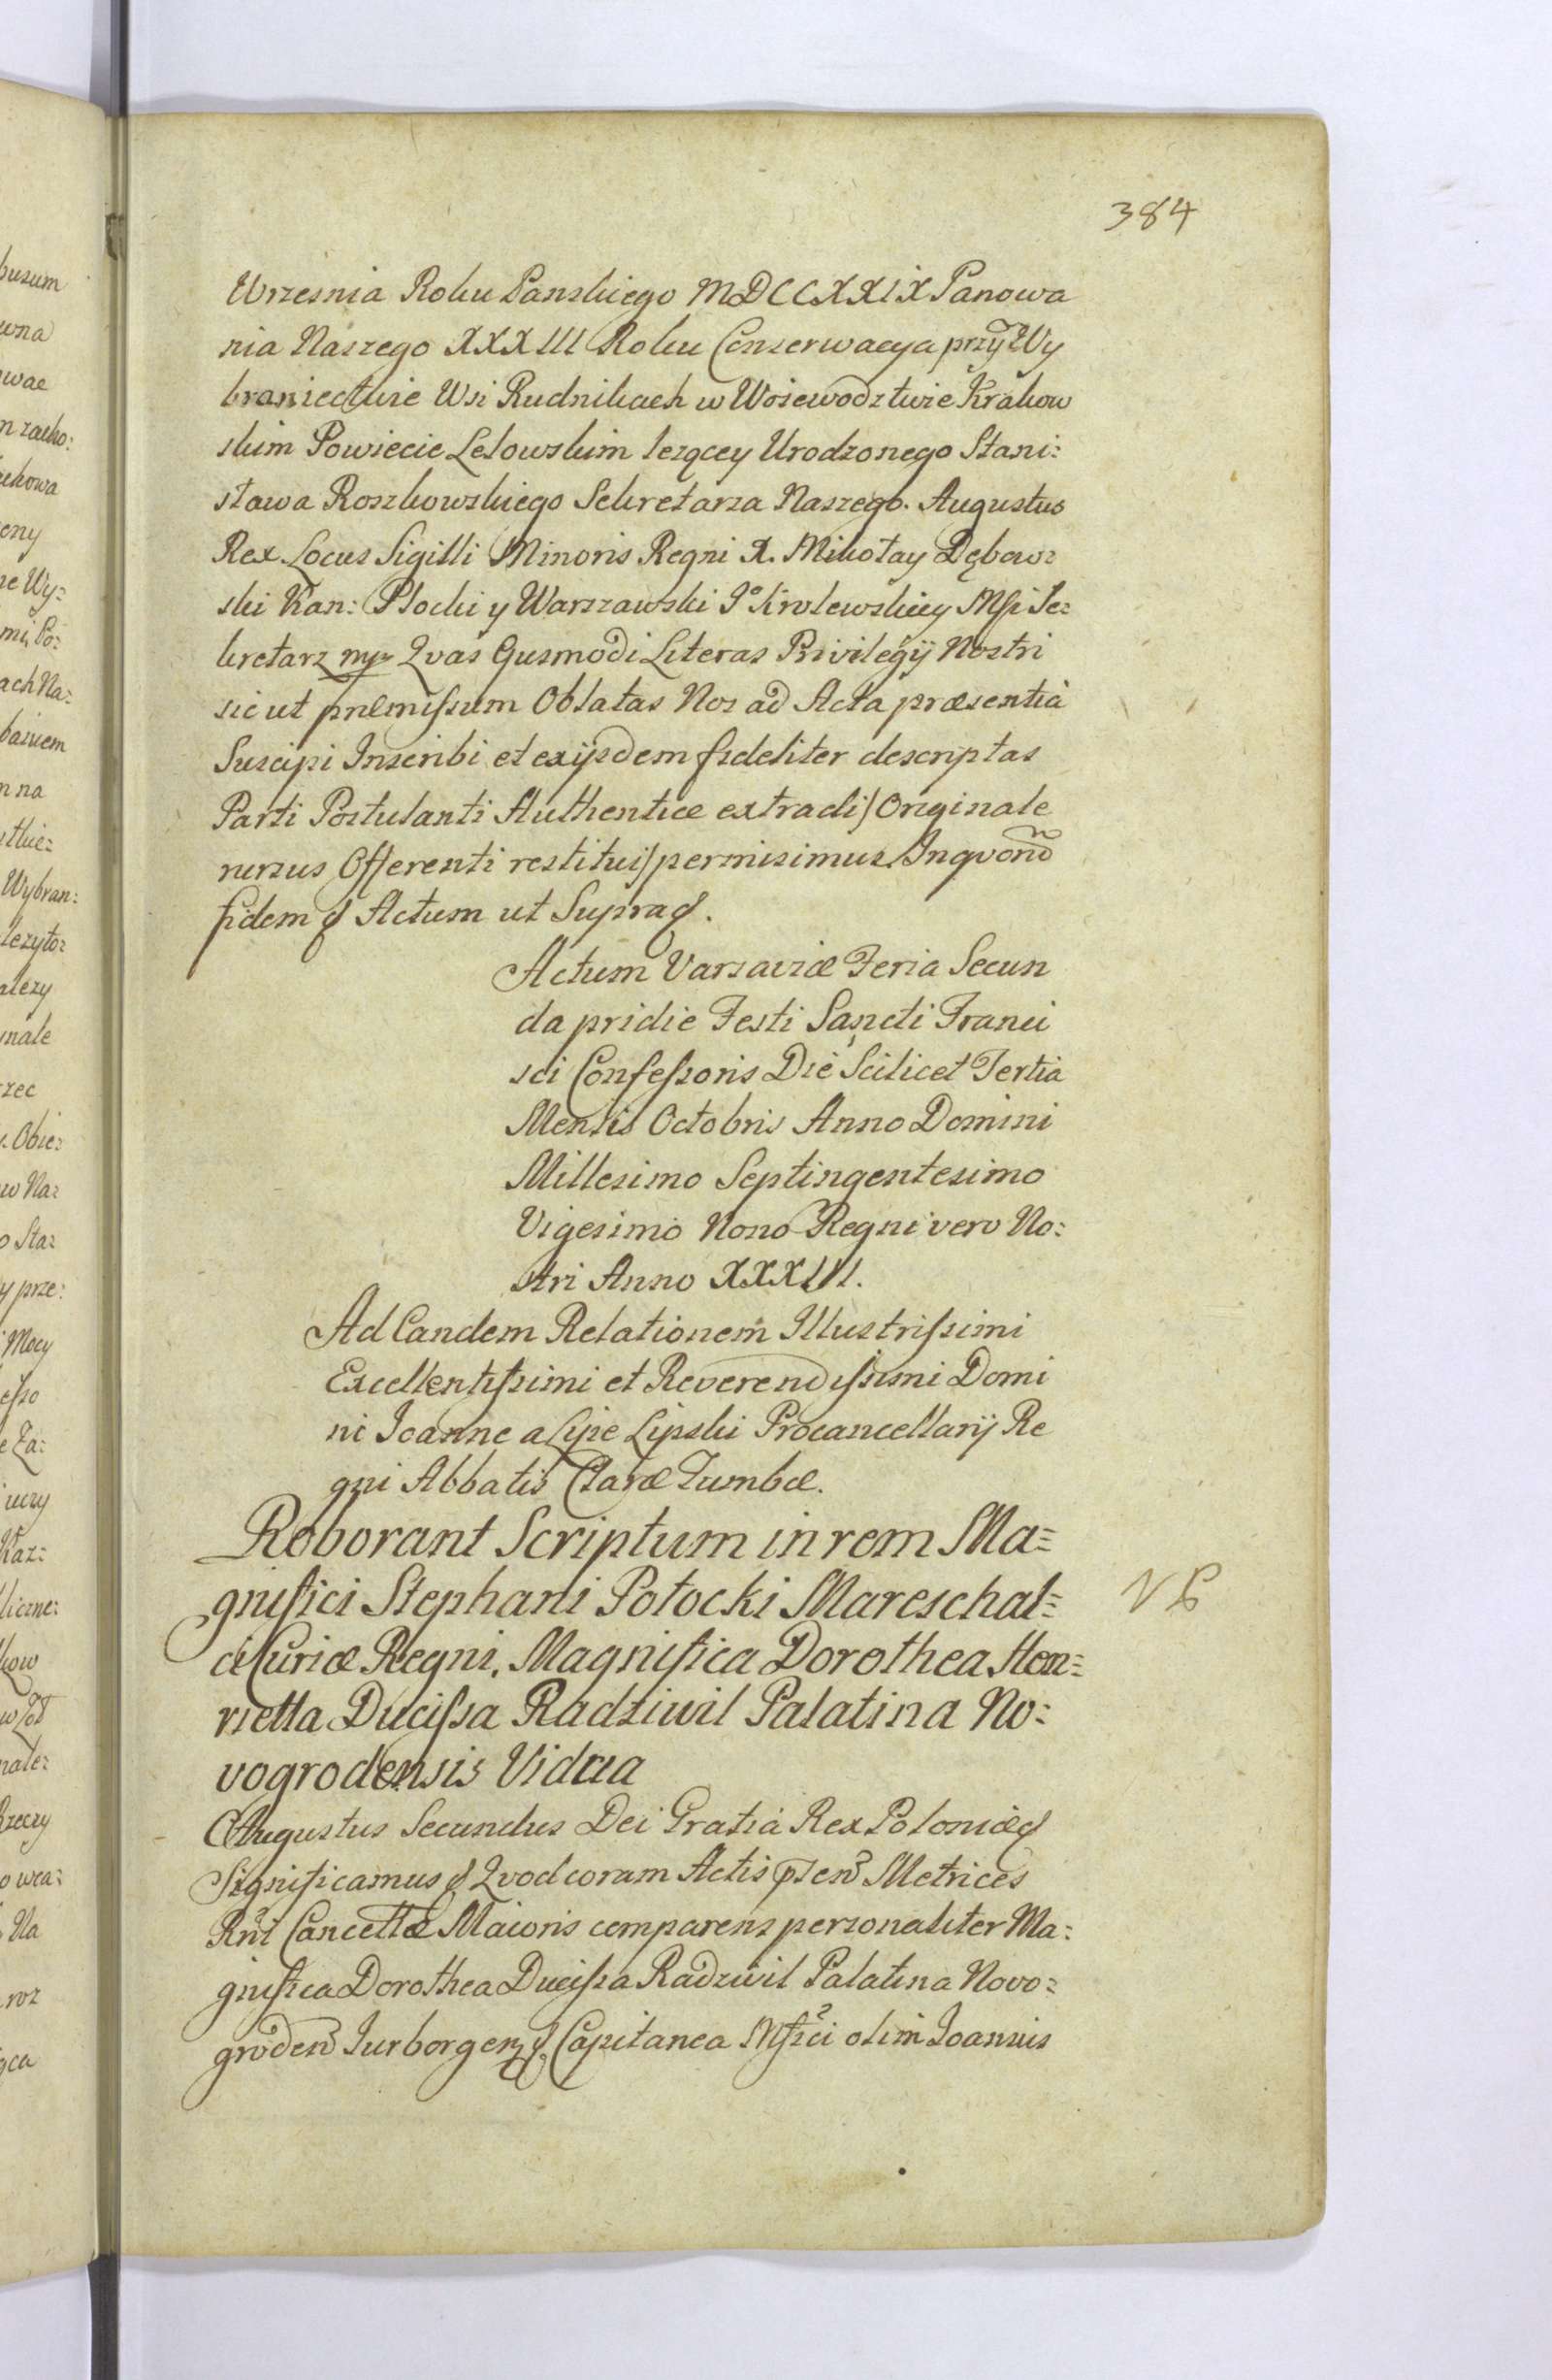 384
Wrzesnia Roku Panskiego MDCCXXIX Panowa
nia Naszego XXXIII Roku Conserwacya przy Wy
braniectwie Wsi Rudnikach w Woiewodztwie Krakow
skim Powiecie Lelowskim lezącey Urodzonego Stani:
sława Roszkowskiego Sekretarza Naszego. Augustus
Rex. Locus Sigilli Minoris Regni X. Mikołay Dębow:
ski Kan: Płocki y Warszawski Jº Krolewskiey Msci Se:
kretarz mp Qvas Gusmodi Literas Privilegij Nostri
sic ut præmissum Oblatas Nos ad Acta præsentia
Suscipi Inscribi et exijsdem fideliter descriptas
Parti Postulanti Authentice extradi/ Originale
rursus Offerenti restitui/ permisimus Inqvorũ
fidem & Actum ut Supra &.
Actum Varsaviæ Feria Secun
da pridie Festi Sancti Franci
sci Confessoris Die Scilicet Tertia
Mensis Octobris Anno Domini
Millesimo Septingentesimo
Vigesimo Nono Regni vero No:
stri Anno XXXIII.
Ad Eandem Relationem Illustrissimi
Excellentissimi et Reverendissimi Domi
ni Joanne a Lipe Lipski Procancellarij Re
gni Abbatis Claræ Tumbæ.
Roborant Scriptum in rem Ma=
gnifici Stephani Potocki Mareschal=
ci Curiæ Regni, Magnifica Dorothea Hen=
rietta Ducissa Radziwil Palatina No:
vogrodensis Vidua
NB
Augustus Secundus Dei Gratia Rex Poloniæ &
Significamus & Qvod coram Actis pñten Metrices
Rñi Cancellæ Maioris comparens personaliter Ma:
gnifica Dorothea Ducissa Radziwil Palatina Novo:
groden Jurborgen & Capitanea Mfici olim Joannis
busum
wna
wae
n zacho:
chowa
eny
ze Wy:
mi, Po:
ach Na:
baiuem
n na
Wybran:
lezyto:
alezy
ynale
rzec
. Obie:
w Na:
o Sta:
y prze:
Mocy
esso
e Za:
uczy
Kaz:
liczne:
kow
nale:
Rzeczy
owca:
Na
roz
ąca